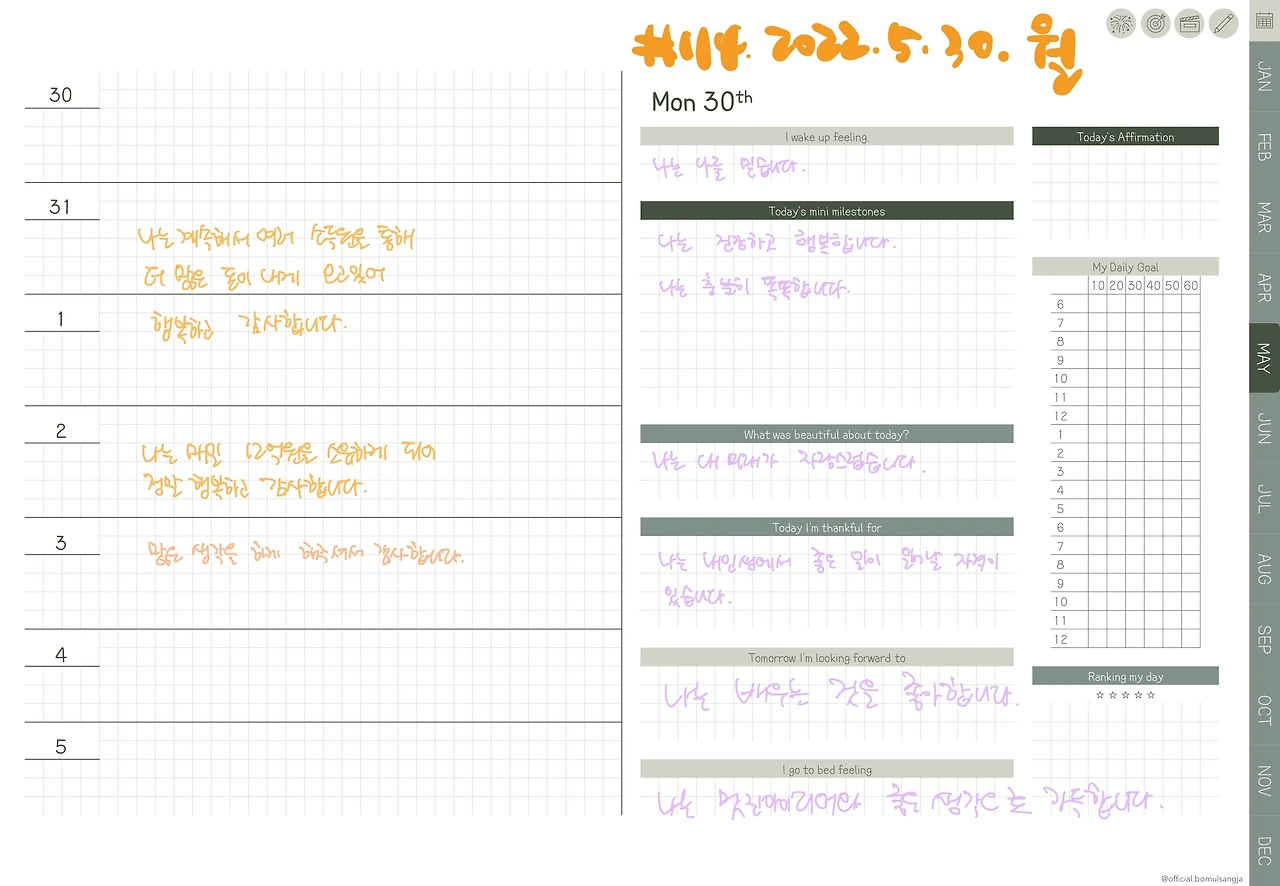 30
31
나는 계속해서 여러 소득원을 통해
더 많은 돈이 내게 오고있어
1
행복하고 감사합니다.
2
나는 매일 12억원을 소유하게 되어
정말 행복하고 감사합니다.
3
많은 생각을 하게 해주셔서 감사합니다.
4
5
#114. 2022. 5. 30. 월
Mon 30th
I wake up feeling.
나는 나를 믿습니다.
Today's mini milestones
나는 건강하고 행복합니다.
나는 충분히 똑똑합니다.
What was beautiful about today?
나는 내 미래가 자랑스럽습니다.
Today I'm thankful for
나는 내인생에서 좋은 일이 일어날 자격이
있습니다.
Tomorrow I'm looking forward to
나는 배우는 것을 좋아합니다.
I go to bed feeling
나는 멋진아이디어와 좋은 생각으로 가득합니다.
Today's Affirmation
My Daily Goal
10 20 30 40 50 60
6
7
8
9
10
11
12
1
2
3
4
5
6
7
8
9
10
11
12
Ranking my day
☆ ☆ ☆ ☆ ☆
JAN
FEB
MAR
APR
MAY
JUN
JUL
AUG
SEP
OCT
NOV
DEC
@official.bomulsangja